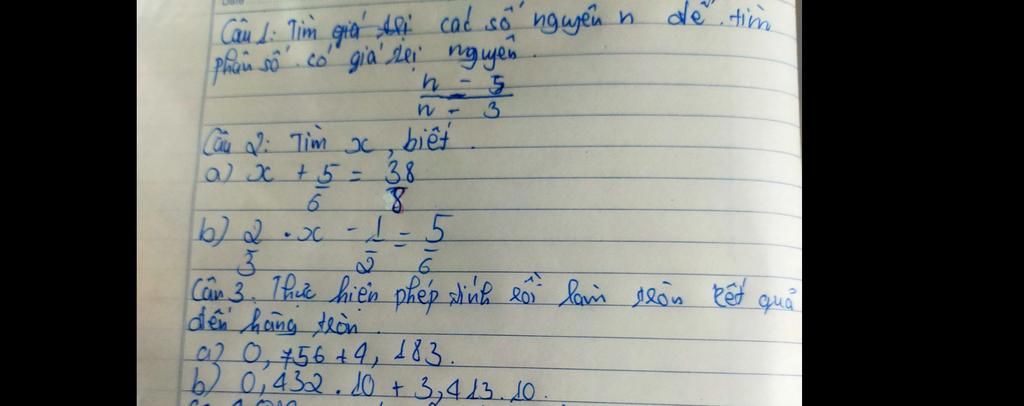 Câu 1: Tìm giá trị các số nguyên n để tìm
phân số có giá trị nguyên.
n - 5
n - 3
Câu 2: Tìm x, biết.
a) x + 5/6 = 38/8
b) 2/3 . x - 1/2 = 5/6
Câu 3. Thực hiện phép tính rồi làm tròn kết quả
đến hàng tròn.
a) 0,756 + 4,183.
b) 0,432.10 + 3,413.10.